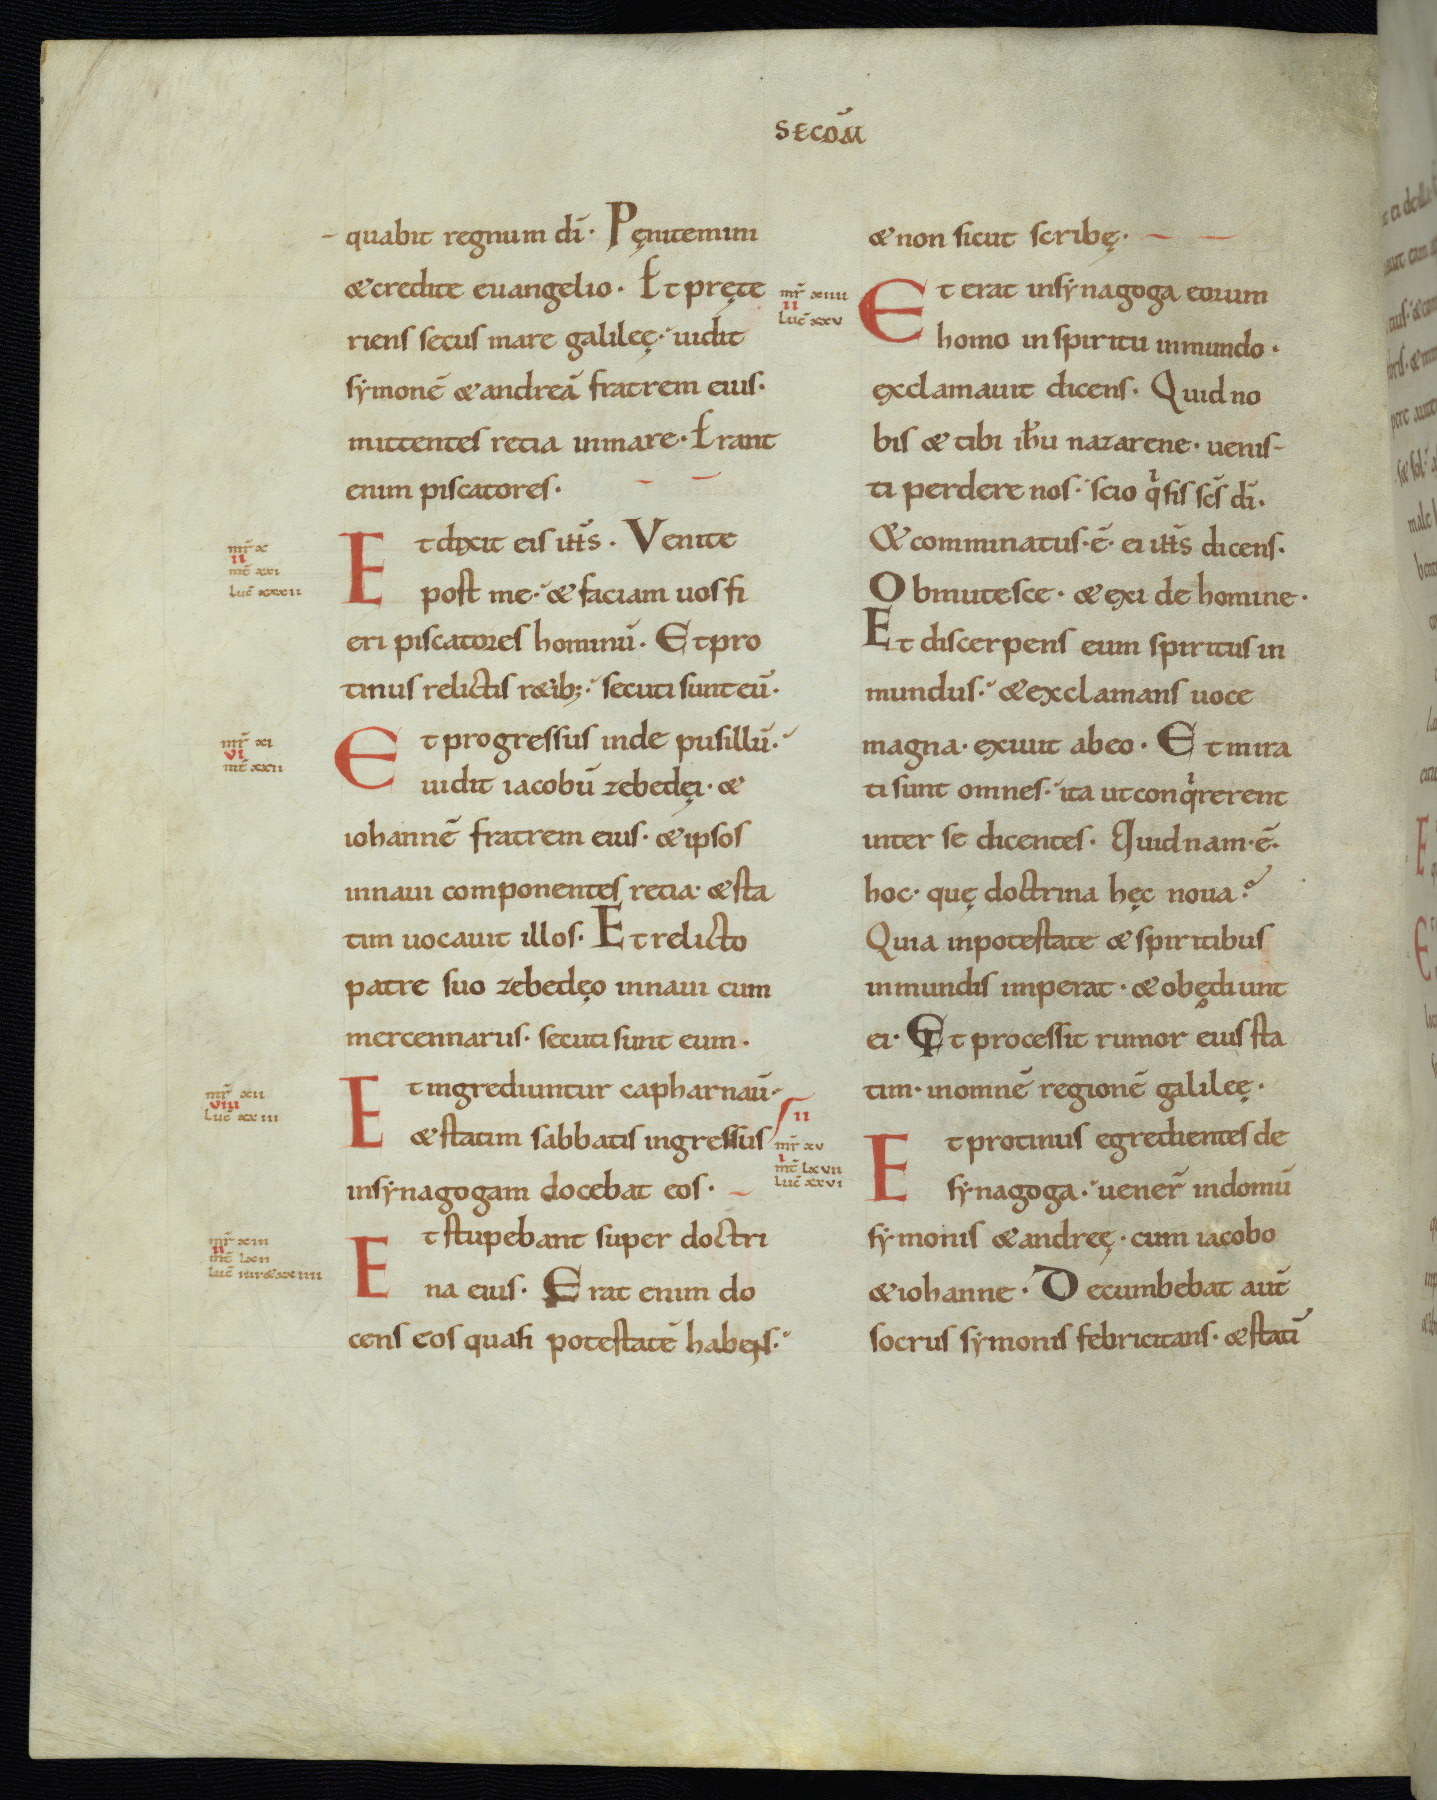 SECOM̄
quabit regnum dī· Pęnitemini
& credite euangelio· Et pręte
riens secus mare galileę· uidit
sẏmonē & andreā fratrem eius·
mittentes retia in mare· Erant
enim piscatores·
mr̄ x
II
mt̄ xxi
luc̄ xxxii
Et dixit eis iħs· Venite
post me· & faciam uos fi
eri piscatores hominū· Et pro
tinus relictis r&ib;· secuti sunt eū·
mr̄ xi
VI
mt̄ xxii
Et progressus inde pusillū·
uidit iacobū zebedęi· &
iohannē fratrem eius· & ipsos
in naui componentes retia· & sta
tim uocauit illos· Et relicto
patre suo zebedęo in naui cum
mercennariis· secuti sunt eum·
mr̄ xii
VIII
luc̄ xxiii
Et ingrediuntur capharnaū·
& statim sabbatis ingressus
in sẏnagogam docebat eos·
mr̄ xiii
II
mt̄ lxii
luc̄ iiii & xxiiii
Et stupebant super doctri
na eius· Erat enim do
cens eos quasi potestatē habens·
& non sicut scribę·
mr̄ xiiii
II
luc̄ xxv
Et erat in sẏnagoga eorum
homo in spiritu inmundo·
exclamauit dicens· Quid no
bis & tibi ihū nazarene· uenis-
ti perdere nos· scio q' sis scs̄ dī·
& comminatus·ē· ei iħs dicens·
Obmutesce· & exi de homine·
Et discerpens eum spiritus in
mundus· & exclamans uoce
magna· exiuit ab eo· Et mira
ti sunt omnes· ita ut conq'rerent
inter se dicentes· Quid nam·ē·
hoc· quę doctrina hęc noua?
Quia in potestate & spiritibus
inmundis imperat· & obędiunt
ei· Et processit rumor eius sta
tim· in omnē regionē galileę·
II
mr̄ xv
I
mt̄ lxvii
luc̄ xxvi
Et protinus egredientes de
sẏnagoga· uener̄ in domū
sẏmonis & andreę· cum iacobo
& iohanne· Decumbebat aut̄
socrus sẏmonis febricitans· & statī